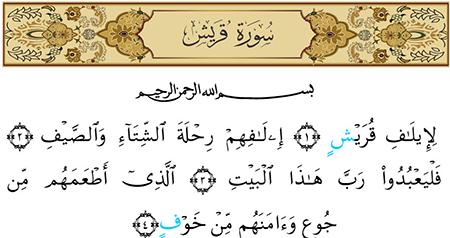 سُورَةُ قُرَيْشٍ
بسم الله الرحمن الرحيم
لِإِيلَـٰفِ قُرَيْشٍ ﴿١﴾ إِۦلَـٰفِهِمْ رِحْلَةَ ٱلشِّتَآءِ وَٱلصَّيْفِ ﴿٢﴾
فَلْيَعْبُدُوا۟ رَبَّ هَـٰذَا ٱلْبَيْتِ ﴿٣﴾ ٱلَّذِىٓ أَطْعَمَهُم مِّن
جُوعٍ وَءَامَنَهُم مِّنْ خَوْفٍۭ ﴿٤﴾